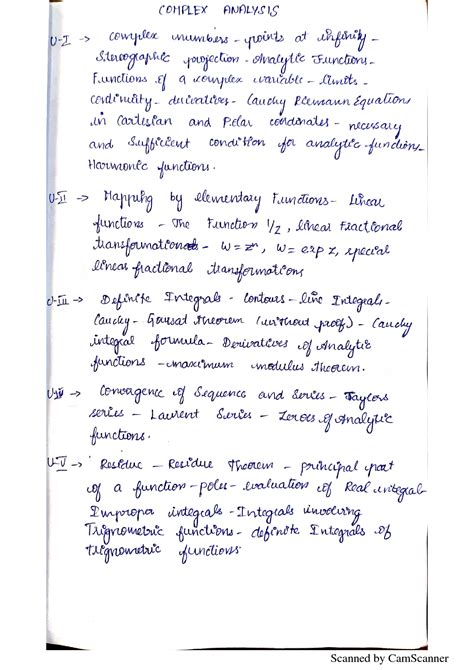 COMPLEX ANALYSIS
U-I → Complex numbers - points at infinity -
Stereographic projection - Analytic Functions -
Functions of a complex variable - limits -
Continuity - derivatives - Cauchy Riemann Equations
in Cartesian and Polar coordinates - necessary
and Sufficient condition for analytic function -
Harmonic functions.
U-II → Mapping by elementary Functions - Linear
functions - The Function 1/z, linear Fractional
transformations - w = zⁿ, w = exp z, special
linear fractional transformations
U-III → Definite Integrals - contours - line Integrals -
Cauchy - Goursat theorem (without proof) - Cauchy
integral formula - Derivatives of Analytic
functions - maximum modulus theorem.
U-IV → Convergence of Sequence and Series - Taylors
series - Laurent Series - Zeroes of Analytic
functions.
U-V → Residue - Residue theorem - principal part
of a function - poles - evaluation of Real integral
Improper integrals - Integrals involving
Trignometric functions - definite Integrals of
trignometric functions
Scanned by CamScanner